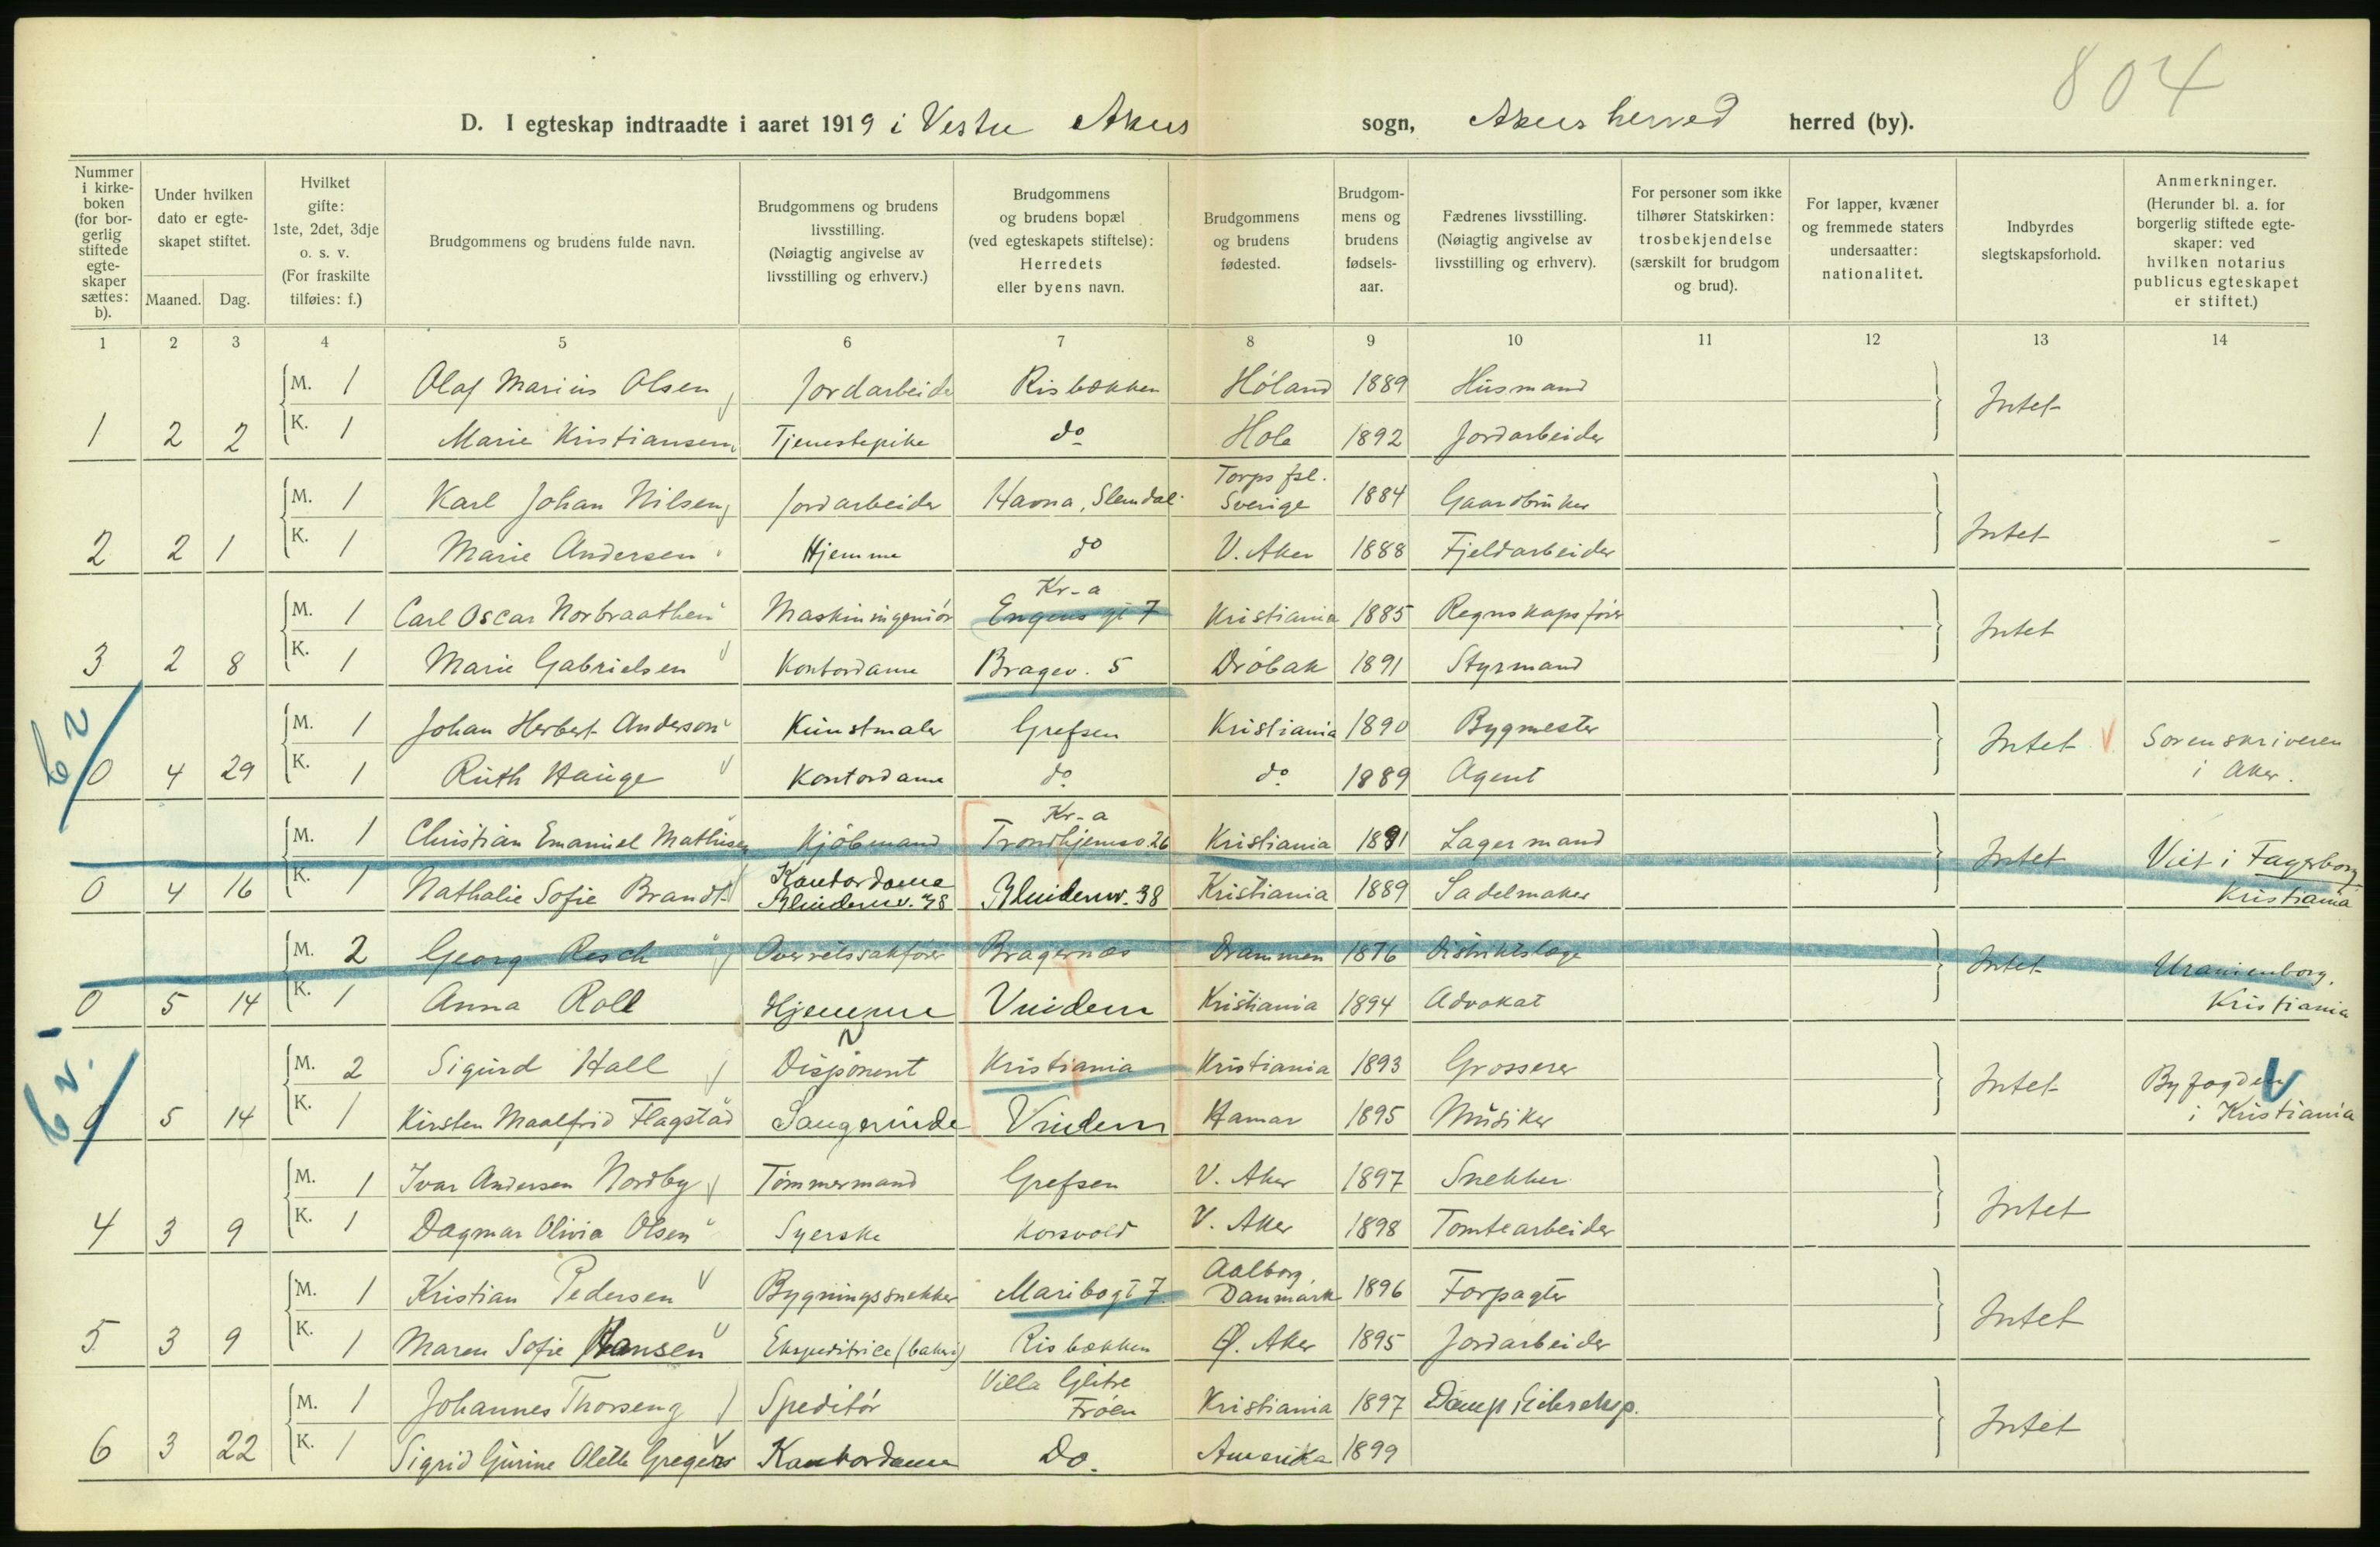 804
D. I egteskap indtraadte i aaret 1919 i Vestre Akers sogn, Akers herred herred (by).
Nummer i kirkeboken (for borgerlig stiftede egteskaper sættes: b).
Under hvilken dato er egteskapet stiftet.
Maaned. Dag.
Hvilket gifte: 1ste, 2det, 3dje o. s. v. (For fraskilte tilføies: f.)
Brudgommens og brudens fulde navn.
Brudgommens og brudens livsstilling. (Nøiagtig angivelse av livsstilling og erhverv.)
Brudgommens og brudens bopæl (ved egteskapets stiftelse): Herredets eller byens navn.
Brudgommens og brudens fødested.
Brudgommens og brudens fødselsaar.
Fædrenes livsstilling. (Nøiagtig angivelse av livsstilling og erhverv).
For personer som ikke tilhører Statskirken: trosbekjendelse (særskilt for brudgom og brud).
For lapper, kvæner og fremmede staters undersaatter: nationalitet.
Indbyrdes slegtskapsforhold.
Anmerkninger. (Herunder bl. a. for borgerlig stiftede egteskaper: ved hvilken notarius publicus egteskapet er stiftet.)
1 2 3 4 5 6 7 8 9 10 11 12 13 14
M. 1 Olaf Marius Olsen Jordarbeider Risbækken Høland 1889 Husmand Intet
1 2 2 K. 1 Marie Kristiansen Tjenestepike do Hole 1892 Jordarbeider
Torps fsl.
M. 1 Karl Johan Nilsen Jordarbeider Havna, Slemdal Sverige 1884 Gaardbruker Intet
2 2 1 K. 1 Marie Andersen Hjemme do V. Aker 1888 Fjeldarbeider -
Kr-a
M. 1 Carl Oscar Norbraathen Maskiningeniør Engens gt 7 Kristiania 1885 Regnskapsfører Intet
3 2 8 K. 1 Marie Gabrielsen Kontordame Bragev. 5 Drøbak 1891 Styrmand
M. 1 Johan Herbert Anderson Kunstmaler Grefsen Kristiania 1890 Bygmester Intet Sorenskriveren
0 4 29 K. 1 Ruth Hauge Kontordame do do 1889 Agent i Aker.
Kr-a
M. 1 Christian Emanuel Mathisen Kjøbmand Trondhjemsv. 26 Kristiania 1891 Lagermand Intet Viet i Fagerborg
Kontordame
0 4 16 K. 1 Nathalie Sofie Brandt Blindernv. 38 Blindernv. 38 Kristiania 1889 Sadelmaker Kristiania
M. 2 Georg Resch Overretssakfører Bragernes Drammen 1876 Distriktslæge Intet Uranienborg,
0 5 14 K. 1 Anna Roll Hjemme Vindern Kristiania 1894 Advokat Kristiania
M. 2 Sigurd Hall Disponent Kristiania Kristiania 1893 Grosserer Intet Byfogden
0 5 14 K. 1 Kirsten Maalfrid Flagstad Sangerinde Vindern Hamar 1895 Musiker i Kristiania
M. 1 Ivar Andersen Nordby Tømmermand Grefsen V. Aker 1897 Snekker Intet
4 3 9 K. 1 Dagmar Olivia Olsen Syerske Korsvold V. Aker 1898 Tomtearbeider
Aalborg,
M. 1 Kristian Pedersen Bygningssnekker Maribogt 7. Danmark 1896 Forpagter Intet
5. 3 9 K. 1 Maren Sofie Hansen Ekspeditrice (bakeri) Risbækken Ø. Aker 1895 Jordarbeider
Villa Glitre
M. 1 Johannes Thorseng Speditør Frøen Kristiania 1897 Intet
6 3 22 K. 1 Sigrid Gurine Olette Gregers Kontordame Do. Amerika 1899